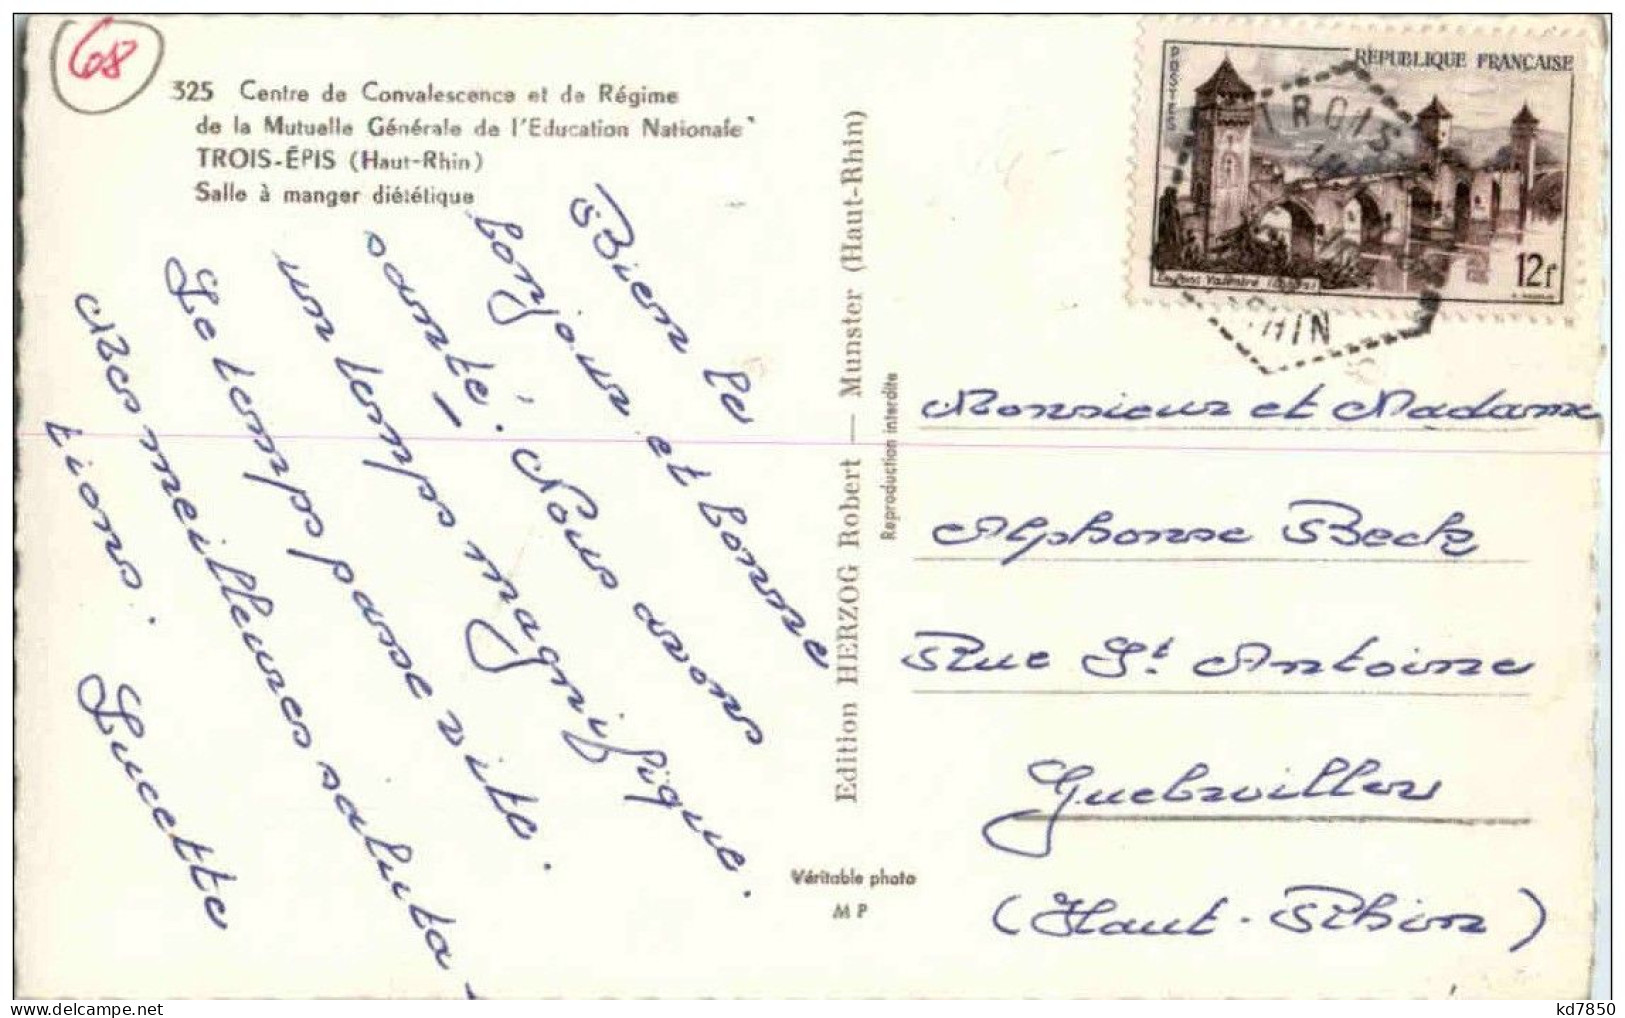 68
325 Centre de Convalescence et de Régime
de la Mutuelle Générale de l'Education Nationale
TROIS-ÉPIS (Haut-Rhin)
Salle à manger diététique
Bien le
bonjour et bonne
santé. Nous avons
un temps magnifique.
Le temps passe vite.
Mes meilleures saluta-
tions.
Lucette
Edition HERZOG Robert — Munster (Haut-Rhin)
Reproduction interdite
Véritable photo
MP
RÉPUBLIQUE FRANÇAISE
POSTES
Le Pont Valentré
12f
TROIS
RHIN
Monsieur et Madame
Alphonse Beck
Rue St Antoine
Guebwiller
(Haut-Rhin)
kd7850